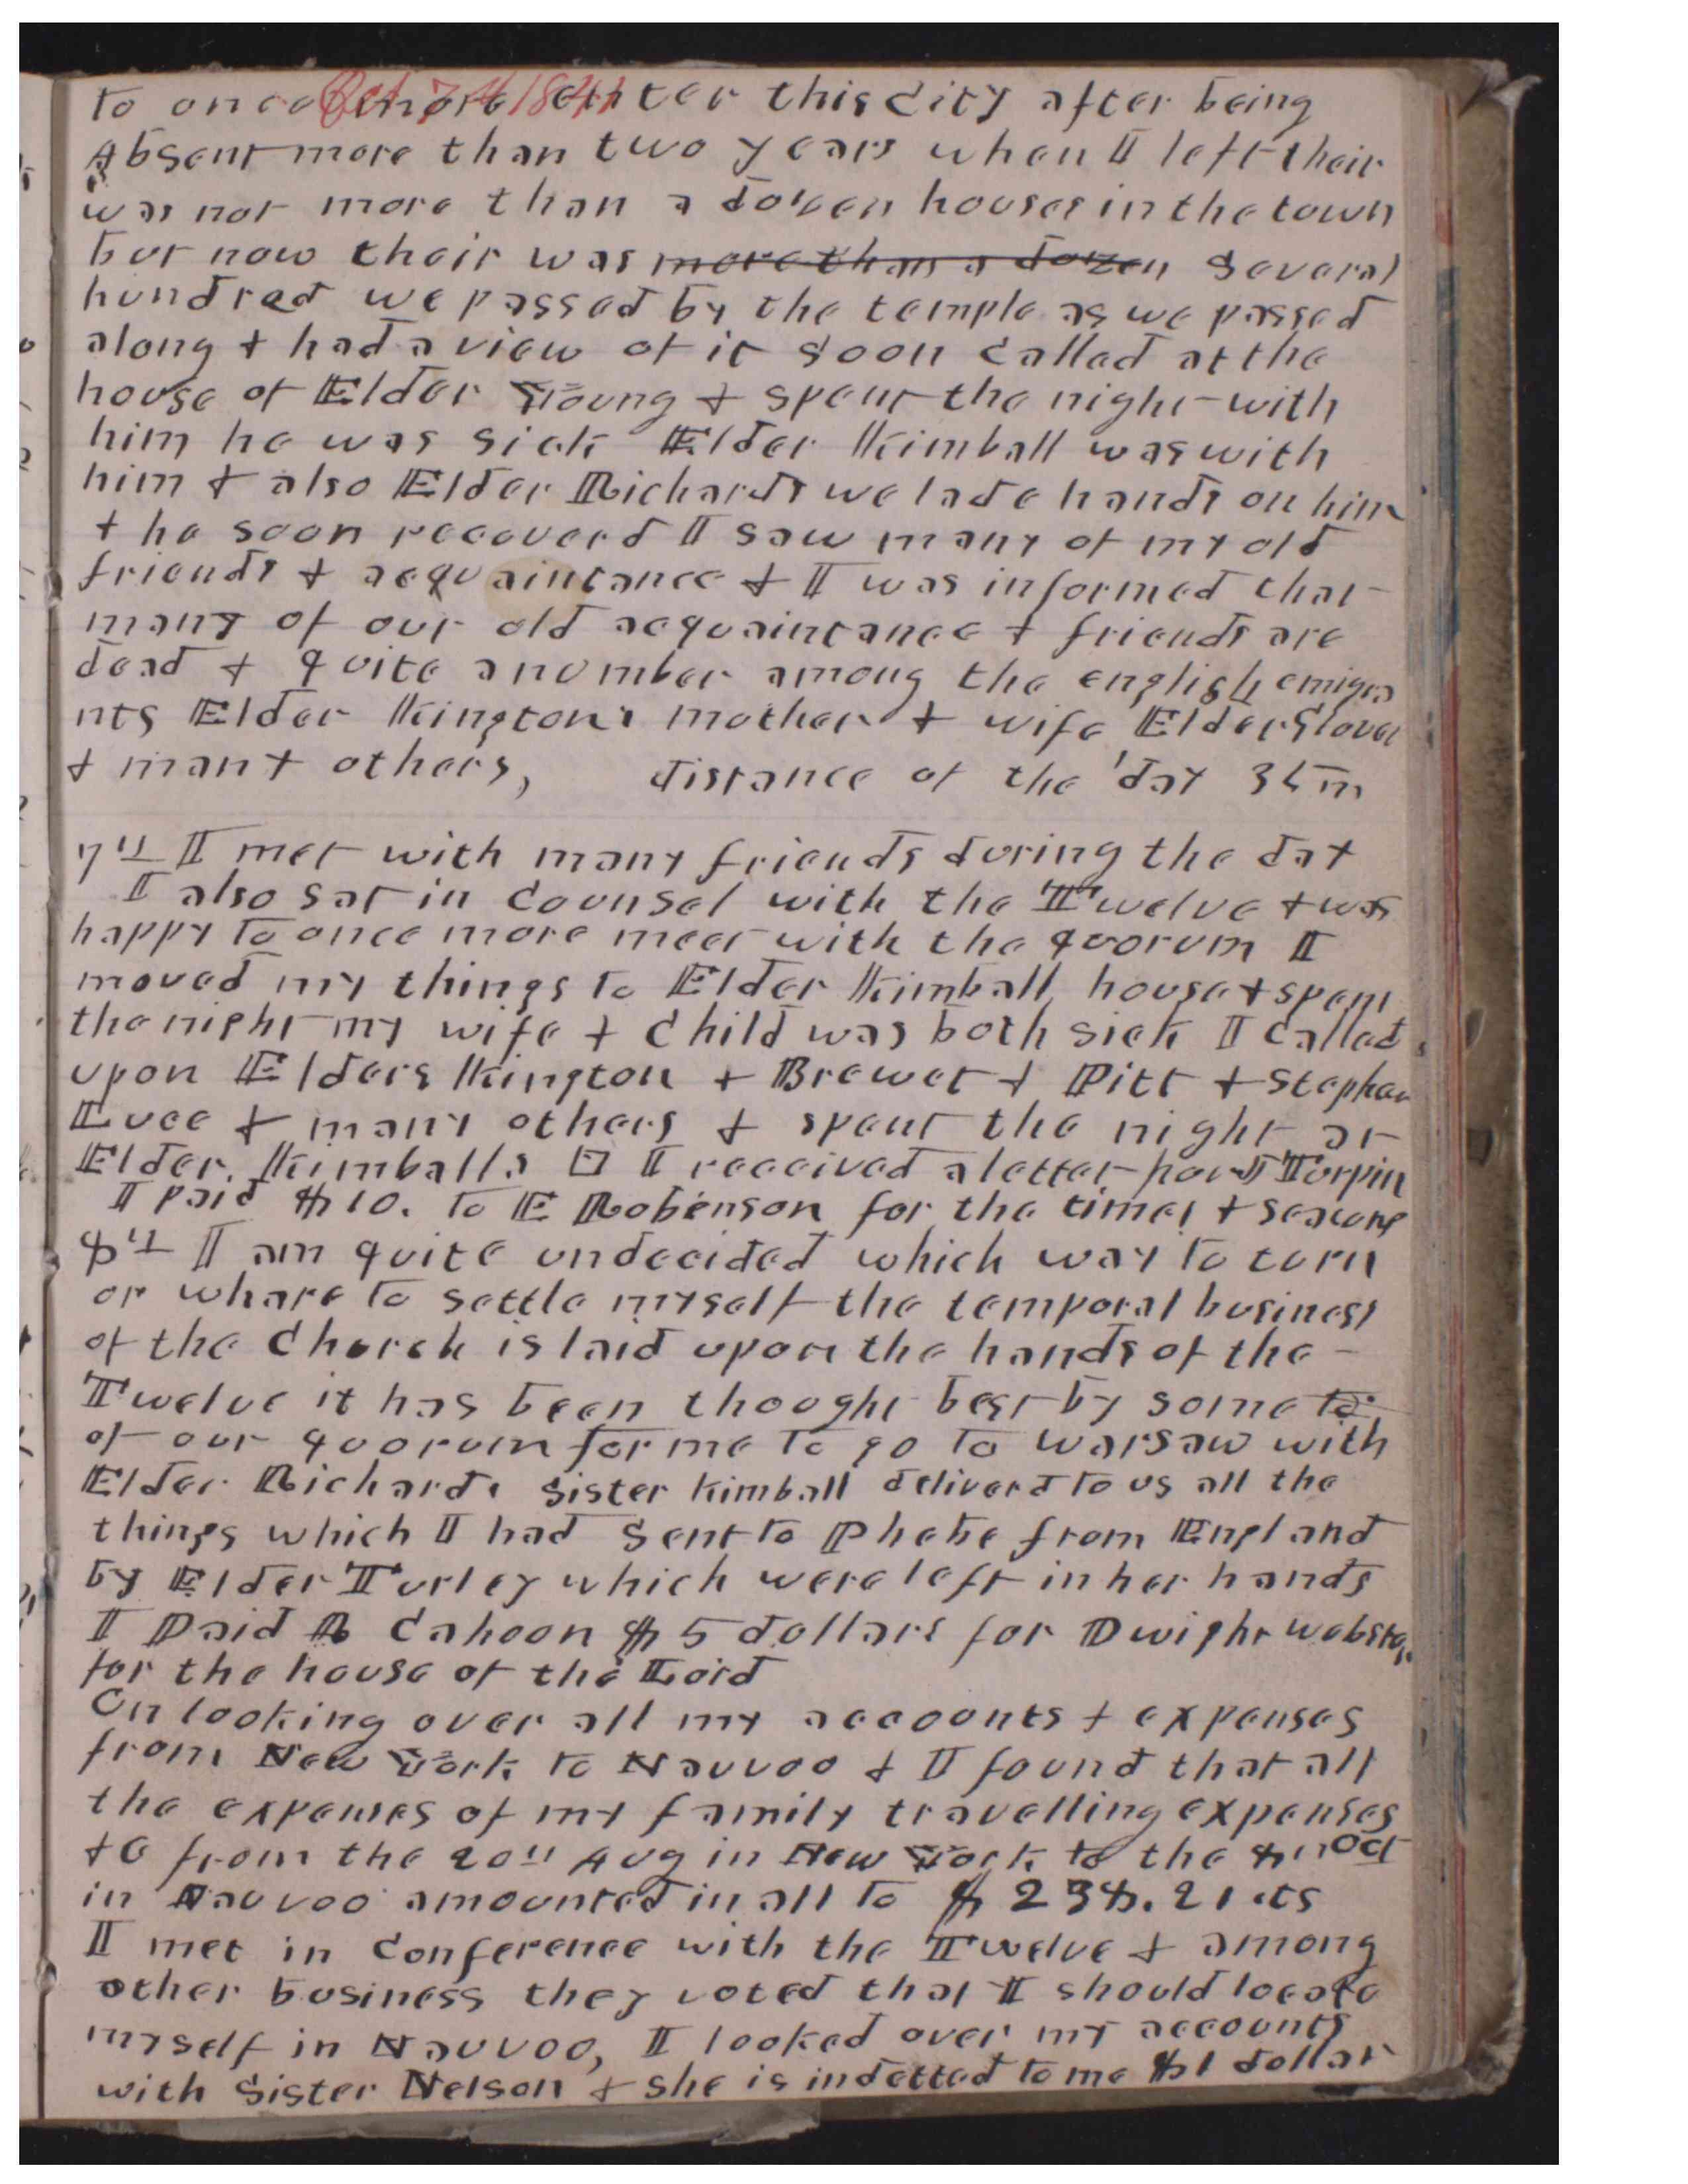 Oct 7th 1841
to once more entter this City after being
Absent more than two years when I left their
was not more than a dozen houses in the town
but now their was more than a dozen Several
hundred we passed by the temple as we passed
along & had a view of it Soon Called at the
house of Elder Young & spent the night with
him he was sick Elder Kimball was with
him & also Elder Richards we lade hands on him
& he soon recoverd I saw many of my old
friends & acquaintance & I was informed that
many of our old acquaintance & friends are
dead & quite a number among the english emigra
nts Elder Kington's mother & wife Elder Glover
& many others, distance of the day 35 m
7th I met with many friends during the day
I also sat in Counsel with the Twelve & was
happy to once more meet with the quorum I
moved my things to Elder Kimball house & spent
the night my wife & Child was both sick I called
upon Elders Kington & Brewet & Pitt & Stephen
Luce & many others & spent the night at
Elder Kimballs I received a letter from J Turpin
I paid $10. to E Robinson for the times & seasons
8th I am quite undecided which way to turn
or whare to settle myself the temporal business
of the Church is laid upon the hands of the
Twelve it has been thought best by some to
of our quorum for me to go to Warsaw with
Elder Richards Sister Kimball deliverd to us all the
things which I had Sent to Phebe from England
by Elder Turley which were left in her hands
I Paid R Cahoon $5 dollars for Dwight Webster
for the house of the Lord
On looking over all my accounts & expenses
from New York to Nauvoo & I found that all
the expenses of my family travelling expenses
&c from the 20th Aug in New York to the 8th Oct
in Nauvoo amounted in all to $238.21 cts
I met in Conference with the Twelve & among
other business they voted that I should locate
myself in Nauvoo, I looked over my accounts
with Sister Nelson & she is indetted to me $1 dollar